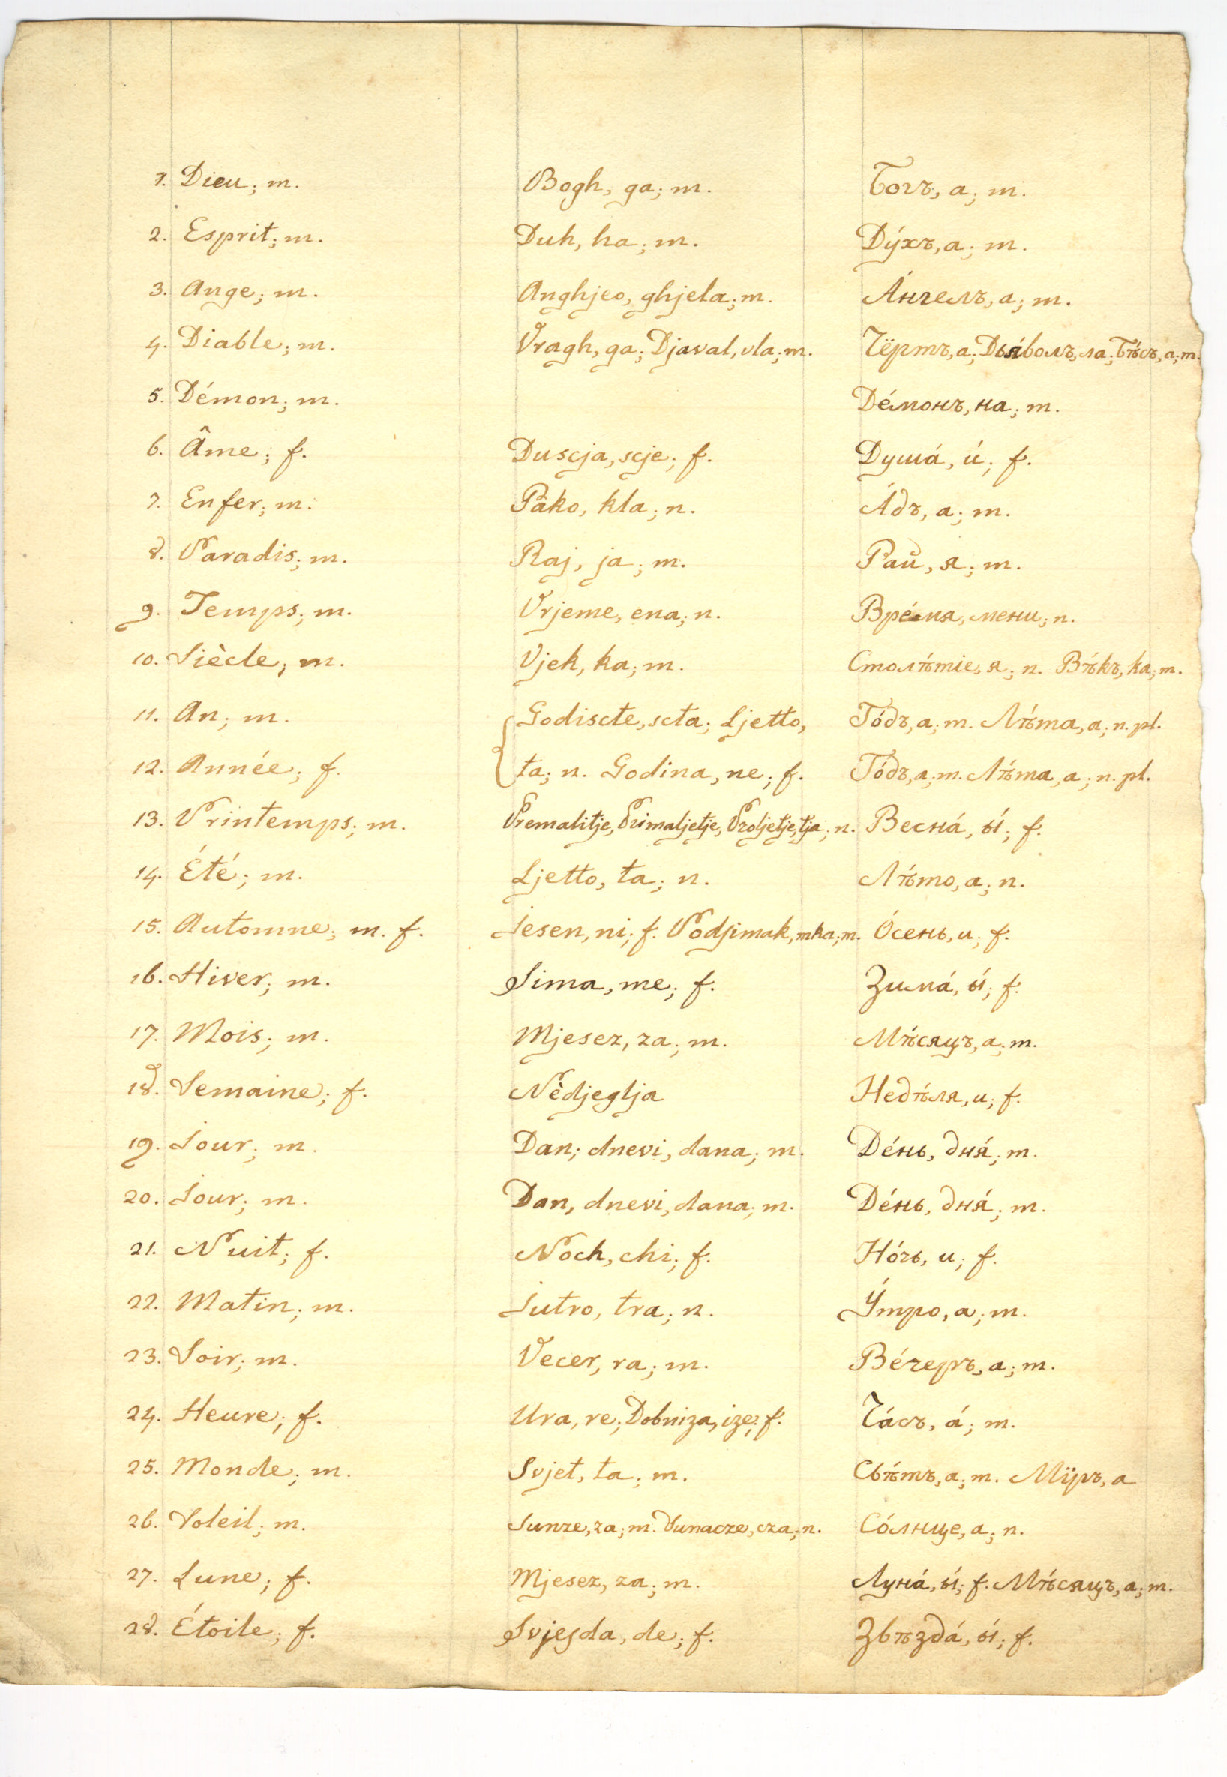 1. Dieu; m. Bogh, ga; m. Богъ, а; m.
2. Esprit; m. Duh, ha; m. Ду́хъ, а; m.
3. Ange; m. Anghjeo, ghjela; m. А́нгелъ, а; m.
4. Diable; m. Vragh, ga; Djaval, vla; m. Чёртъ, а; Дья́волъ, ла; Бѣ́съ, а; m.
5. Démon; m. Де́монъ, на; m.
6. Âme; f. Duscja, scje; f. Душа́, и́; f.
7. Enfer; m. Pàko, kla; n. А́дъ, а; m.
8. Paradis; m. Raj, ja; m. Рай, я; m.
9. Temps; m. Vrjeme, ena; n. Вре́мя, мени; n.
10. Siècle; m. Vjek, ka; m. Столѣтіе, я; n. Вѣ́къ, ka; m.
11. An; m. Godiscte, scta; Ljetto, Го́дъ, а; m. Лѣ́та, а; n. pl.
12. Année; f. ta; n. Godina, ne; f. Го́дъ, а; m. Лѣ́та, а; n. pl.
13. Printemps; m. Premalitje, Primaljetje, Proljetje, tja; n. Весна́, ы́; f.
14. Été; m. Ljetto, ta; n. Лѣ́то, а; n.
15. Automne; m. f. Jesen, ni; f. Podjimak, mka; m. О́сень, и; f.
16. Hiver; m. Sima, me; f. Зима́, ы́; f.
17. Mois; m. Mjesez, za; m. Мѣ́сяцъ, а; m.
18. Semaine; f. Nèdjeglja Недѣ́ля, и; f.
19. Jour; m. Dan; dnevi, dana; m. Де́нь, дня́; m.
20. Jour; m. Dan, dnevi, dana; m. Де́нь, дня́; m.
21. Nuit; f. Noch, chi; f. Но́чь, и; f.
22. Matin; m. Jutro, tra; n. У́тро, а; m.
23. Soir; m. Vecer, ra; m. Ве́черъ, а; m.
24. Heure; f. Ura, re; Dobniza, ize; f. Ча́съ, а́; m.
25. Monde; m. Svjet, ta; m. Свѣ́тъ, а; m. Мїръ, а
26. Soleil; m. Sunze, za; m. Sunacze, cza; n. Со́лнце, а; n.
27. Lune; f. Mjesez, za; m. Луна́, ы́; f. Мѣ́сяцъ, а; m.
28. Étoile; f. Svjesda, de; f. Звѣзда́, ы́; f.